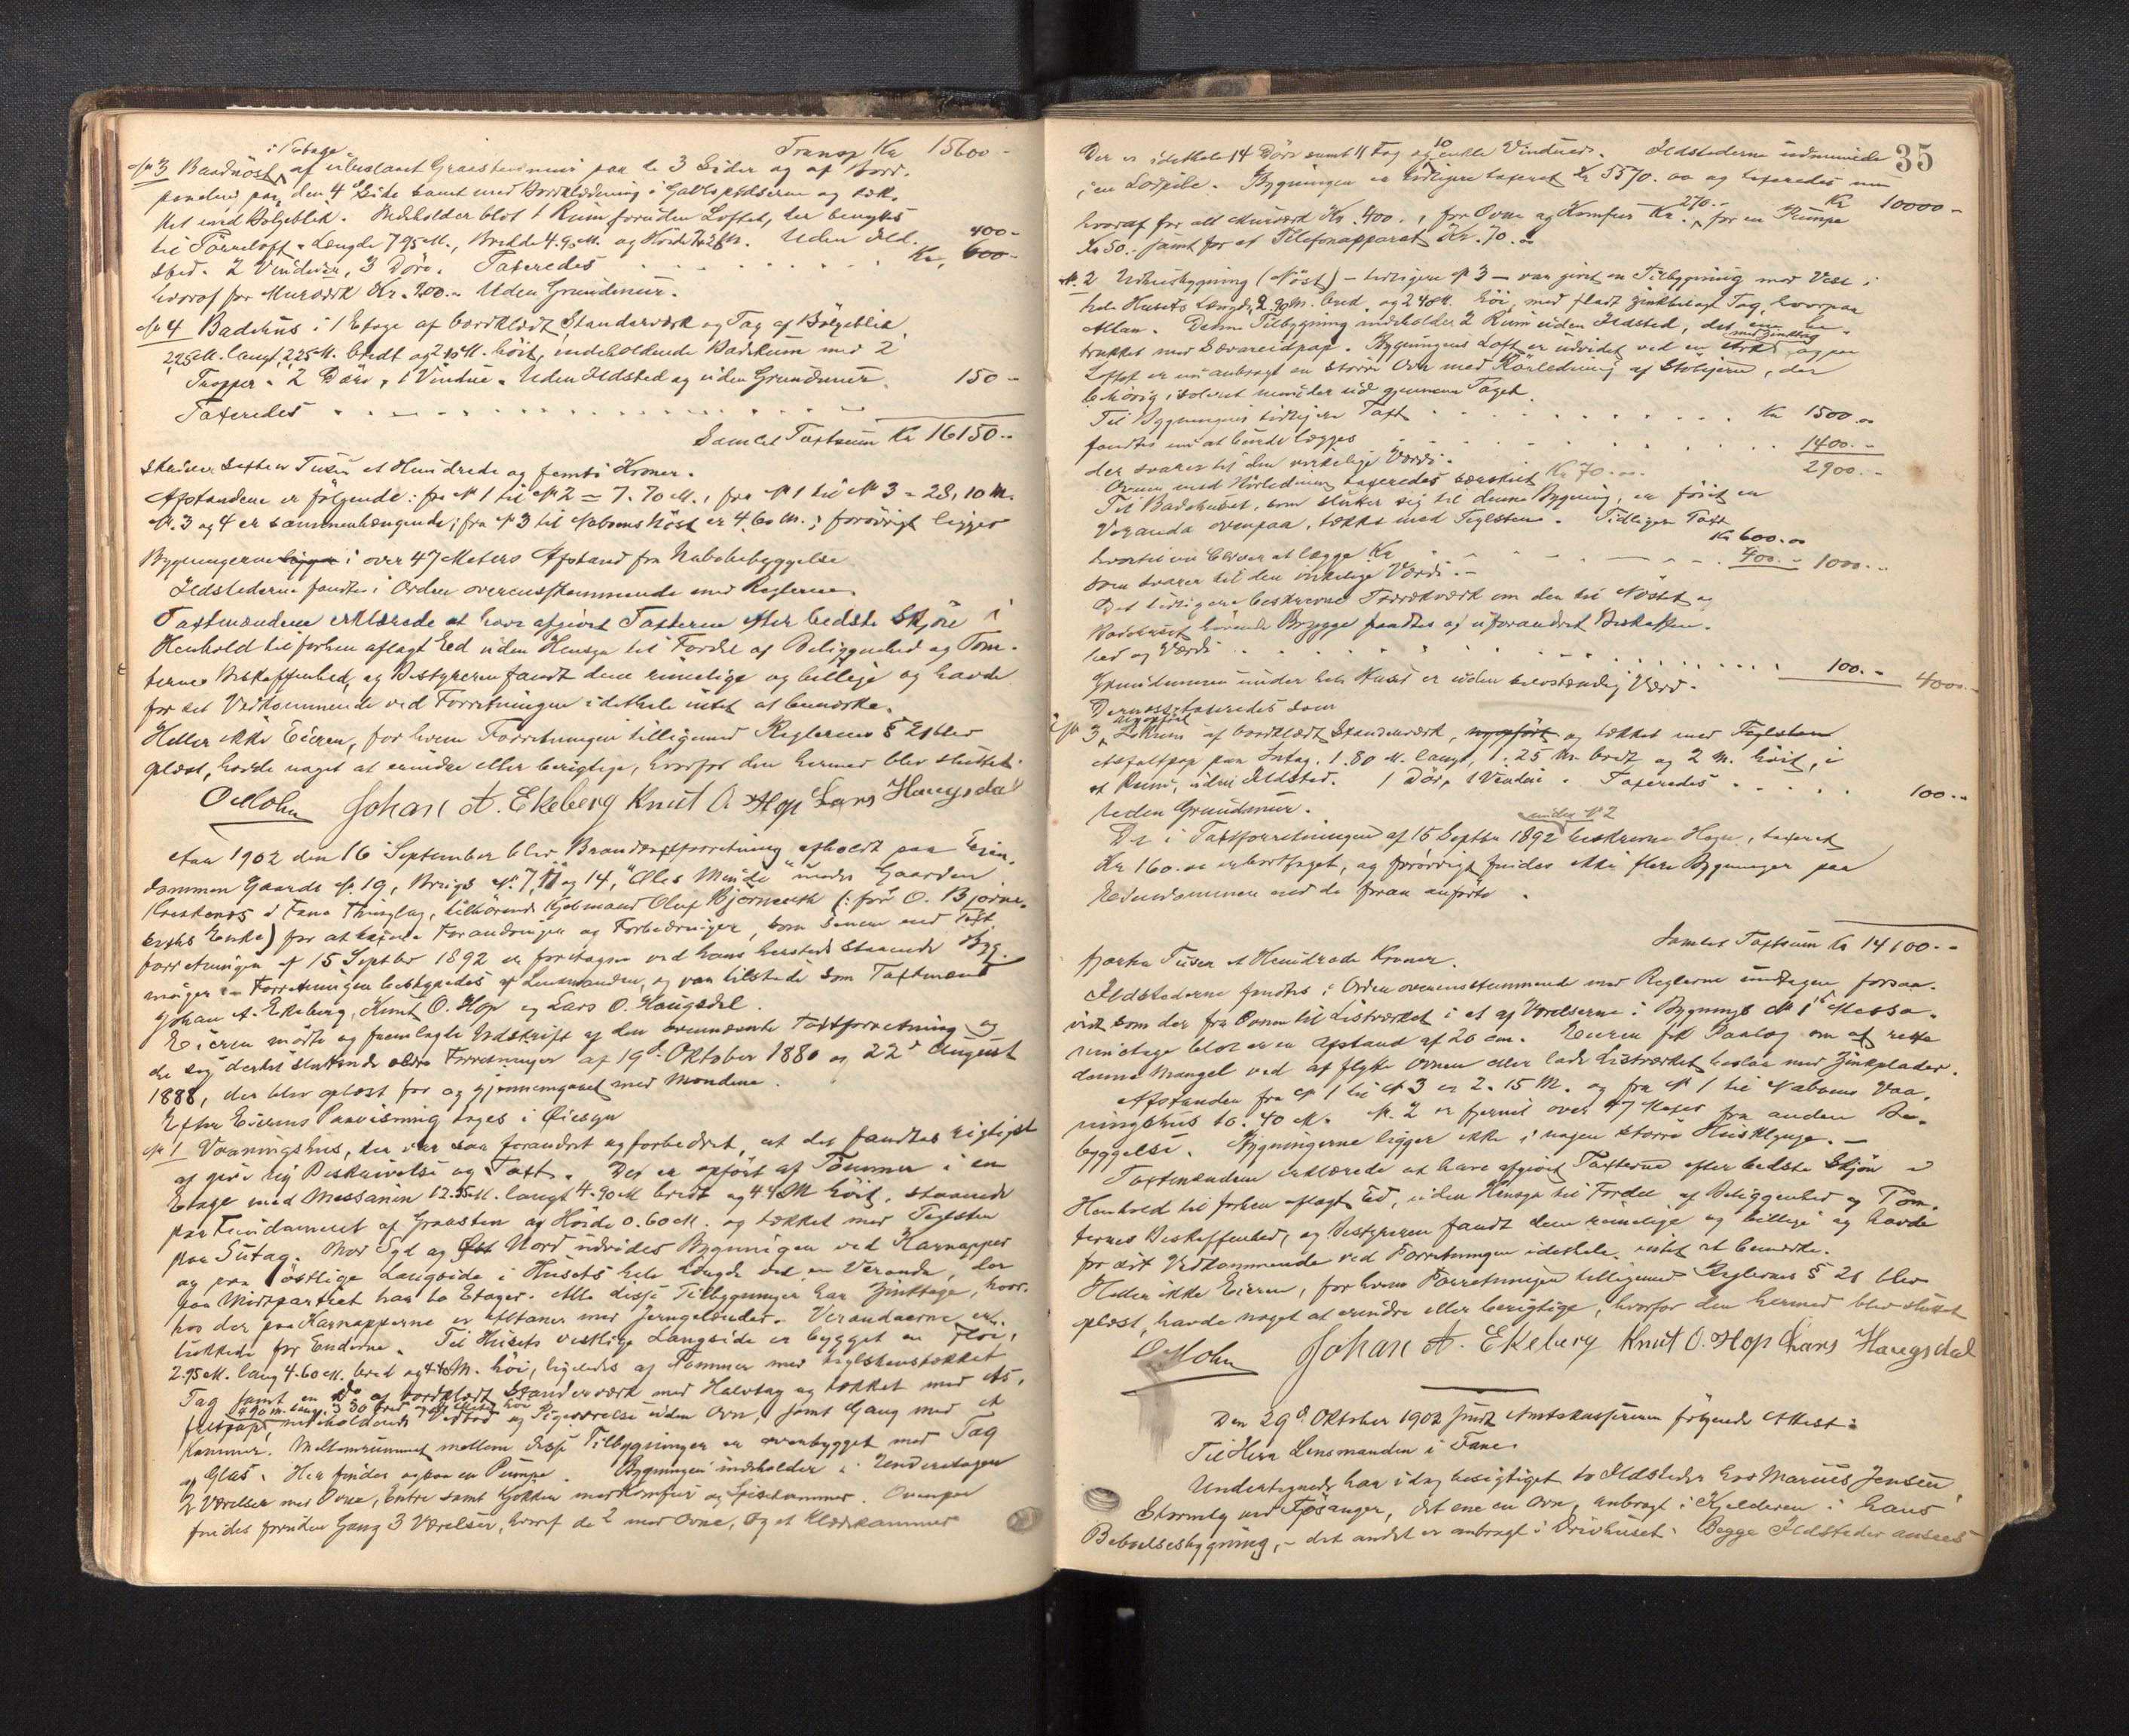 Transp Kr 15600 -
i 1 Etage
№ 3 Baadnøst af uhuslaat Graastensmur paa de 3 Sider og af Bord-
paa den 4de Side samt med Bordklædning i Gavlspidserne og tæk-
ket med Bølgeblik. Indeholder blot 1 Rum foruden Loftet, der benyttes
til Tørreloft. Længde 7.95 M., Bredde 4.90 M. og Høide Uden Ild-
sted. 2 Vinduer, 3 Døre. Taxeredes Kr. 600 - 400 -
hvoraf for Murværk Kr. 200.- Uden Grundmur.
№ 4 Badehus i 1 Etage af bordklædt Standerværk og Tag af Bølgeblik
2,25 M. langt, 2,25 M. bredt og 2,10 M. høit, indeholdende Baderum med 2
Trapper. 2 Døre, 1 Vindue. Uden Ildsted og uden Grundmur.
Taxeredes 150 -
Samlet Taxtsum Kr 16150 --
skriver Sexten Tusen et Hundrede og femti Kroner.
Afstandene er følgende: fra № 1 til № 2 = 7.70 M., fra № 1 til № 3 = 28,10 M.
№. 3 og 4 er sammenhængende; fra № 3 til Naboens Nøst er 4.60 M.; forøvrigt ligger
Bygningerne ligger i over 47 Meters Afstand fra Nabobebyggelse
Ildstederne fandtes i Orden overensstemmende med Reglerne.
Taxtmændene erklærede at have afgivet Taxterne efter bedste Skjøn i
Henhold til forhen aflagt Eed uden Hensyn til Fordel af Beliggenhed og Tom-
ternes Beskaffenhed, og Bestyreren fandt dem rimelige og billige og havde
for sit Vedkommende ved Forretningen idethele intet at bemærke.
Heller ikke Eieren, for hvem Forretningen tilligemed Reglernes § 21 blev
oplæst, havde noget at erindre eller berigtige, hvorfor den hermed blev sluttet.
Johan A. Ekeberg Knut O. Hop Lars Haugsdal
Aar 1902 den 16 September blev Brandtaxtforretning afholdt paa Eien-
dommen Gaards №. 19, Brugs №. 7, 11 og 14, "Oles Minde" under Gaarden
i Fane Thinglag, tilhørende Kjøbmand Oluf Bjørneseth (: før O. Bjørne-
seths Enke) for at taxere Forandringer og Forbedringer, som senere end Taxt-
forretningen af 15 Septbr 1892 er foretagne ved hans hersteds staaende Byg-
ninger. - Forretningen bestyredes af Lensmanden, og var tilstede som Taxtmænd
Johan A. Ekeberg, Knut O. Hop og Lars O. Haugsdal.
Eieren mødte og fremlagte Udskrift af den ovennævnte Taxtforretning og
de sig dertil sluttende ældre Forretninger af 19de Oktober 1880 og 22de August
1888, der blev oplæst for og gjennemgaaet med Mændene.
Efter Eierens Paavisning toges i Øiesyn
№ 1 Vaaningshus, der var saa forandret og forbedret, at det fandtes rigtigst
at give ny Beskrivelse og Taxt. Det er opført af Tømmer i en
Etage med Messanin 12.55 M. langt 4.90 M bredt og 4.48 M høit, staaende
paa Fundament af Graasten af Høide 0.60 M. og tækket med Teglsten
paa Sutag. Mod Syd og Øst Nord udvides Bygningen ved Karnapper
og paa østlige Langside i Husets hele Længde ved en Veranda, der
paa Midtpartiet har to Etager. Alle disse Tilbygninger har Zinktage, hvor-
hos der paa Karnapperne er Altaner med Jerngelænder. Verandaerne er
lukkede for Enderne. Til Husets vestlige Langside er bygget en Fløi,
2.95 M. lang 4.60 M. bred og 4.48 M. høi, ligeledes af Tømmer med teglstenstækket
Tag samt en do af bordklædt Standerværk med Halvtag og tækket med As-
4.90 M. lang, 3.30 bred
faltpap, indeholdende Vedbod og Pigeværelse uden Ovn, samt Gang med et
Kammer. Mellemrummet mellem disse Tilbygninger er overbygget med Tag
af Glas. Her findes ogsaa en Pumpe. Bygningen indeholder i Underetagen
2 Værelser med Ovne, Entre samt Kjøkken med Komfur og Spisekammer. Ovenpaa
findes foruden Gang 3 Værelser, hvoraf de 2 med Ovne, og et Klædekammer
35
Der er idethele 14 Døre samt 11 Fag og 10 enkle Vinduer. Ildstederne udmunde
i en Lodpibe. Bygningen er tidligere taxeret Kr 5570.00 og taxeredes nu Kr 10000 -
hvoraf for alt Murværk Kr. 400., for Ovne og Komfur Kr. 270.-, for en Pumpe
Kr 50.- samt for et Telefonapparat Kr. 70.00
№. 2 Udhusbygning (Nøst) - tidligere № 3 - var givet en Tilbygning mod Vest i
hele Husets Længde, 2.90 M. bred og 2.48 M. høi, med fladt zinktækket Tag, hvorpaa
Altan. Denne Tilbygning indeholder 2 Rum uden Ildsted, det ene be-
trukket med Sævareidpap. Bygningens Loft er udvidet ved en Ark med Zinktag, og paa
Loftet er nu anbragt en større Ovn med Rørledning af Støbejern, der
behørig isoleret munder ud gjennem Taget.
Til Bygningens tidligere Taxt Kr 1500.00
fandtes nu at burde lægges 1400.-
der svarer til den virkelige Værdi. 2900.--
Ovnen med Rørledning taxeredes særskilt Kr 70.--
Til Badehuset, som slutter sig til denne Bygning, er føiet en
Veranda ovenpaa, tække med Teglsten. Tidligere Taxt
Kr 600.00
hvortil nu bliver at lægge Kr 400.- 1000.--
som svarer til den virkelige Værdi.-
Det tidligere beskrevne Træværk om den til Nøstet og
Badehuset hørende Brygge fandtes af uforandret Beskaffen-
hed og Værdi 100.- 4000.-
Grundmuren under hele Huset er uden selvstændig Værd.
Dernæst taxeredes som
№ 3, nyopført Lokrum af bordklædt Standerværk, nyopført og tækket med Teglsten
Asfaltpap paa Sutag. 1.80 M. langt, 1.25 M. bredt og 2 M. høit, i
et Rum, uden Ildsted. 1 Dør, 1 Vindue. Taxeredes 100.--
Uden Grundmur.
Det i Taxtforretningen af 15 Septbr 1892 under № 2 beskrevne Hus, taxeret
Kr 160.00 er borttaget, og forøvrigt findes ikke flere Bygninger paa
Eiendommen end de foran anførte.
Samlet Taxtsum Kr 14100.--
fjorten Tusen et Hundrede Kroner.
Ildstederne fandtes i Orden overensstemmende med Reglerne undtagen forsaa-
vidt som der fra Ovnen til Listværket i et af Værelserne i Bygnings № 1s Messa-
ninetage blot er en Afstand af 20 cm. Eieren fik Paalæg om at rette
denne Mangel ved at flytte Ovnen eller lade Listværket beslaa med Zinkplader.
Afstanden fra № 1 til № 3 er 2.15 M. og fra № 1 til Naboens Vaa-
ningshus 10.40 M. №. 2 er fjernet over 47 Meter fra anden Be-
byggelse. Bygningerne ligger ikke i nogen større Husklynge. -
Taxtmændene erklærede at have afgivet Taxterne efter bedste Skjøn i
Henhold til forhen aflagt Ed, uden Hensyn til Fordel af Beliggenhed og Tom-
ternes Beskaffenhed, og Bestyreren fandt dem rimelige og billige og havde
for sit Vedkommende ved Forretningen idethele intet at bemærke.
Heller ikke Eieren, for hvem Forretningen tilligemed Reglernes § 21 blev
oplæst, havde noget at erindre eller berigtige, hvorfor den hermed blev sluttet
Johan A. Ekeberg Knut O. Hop Lars Haugsdal
Den 29de Oktober 1902 følgende Attest:
Til Herr Lensmanden i Fane.
Undertegnede har idag besigtiget to Ildsteder hos Marius Jensen,
Stormly ved Fjøsanger, det ene en Ovn, anbragt i Kjelderen i hans
Beboelsesbygning, - det andet er anbragt i Drivhuset. Begge Ildsteder ansees